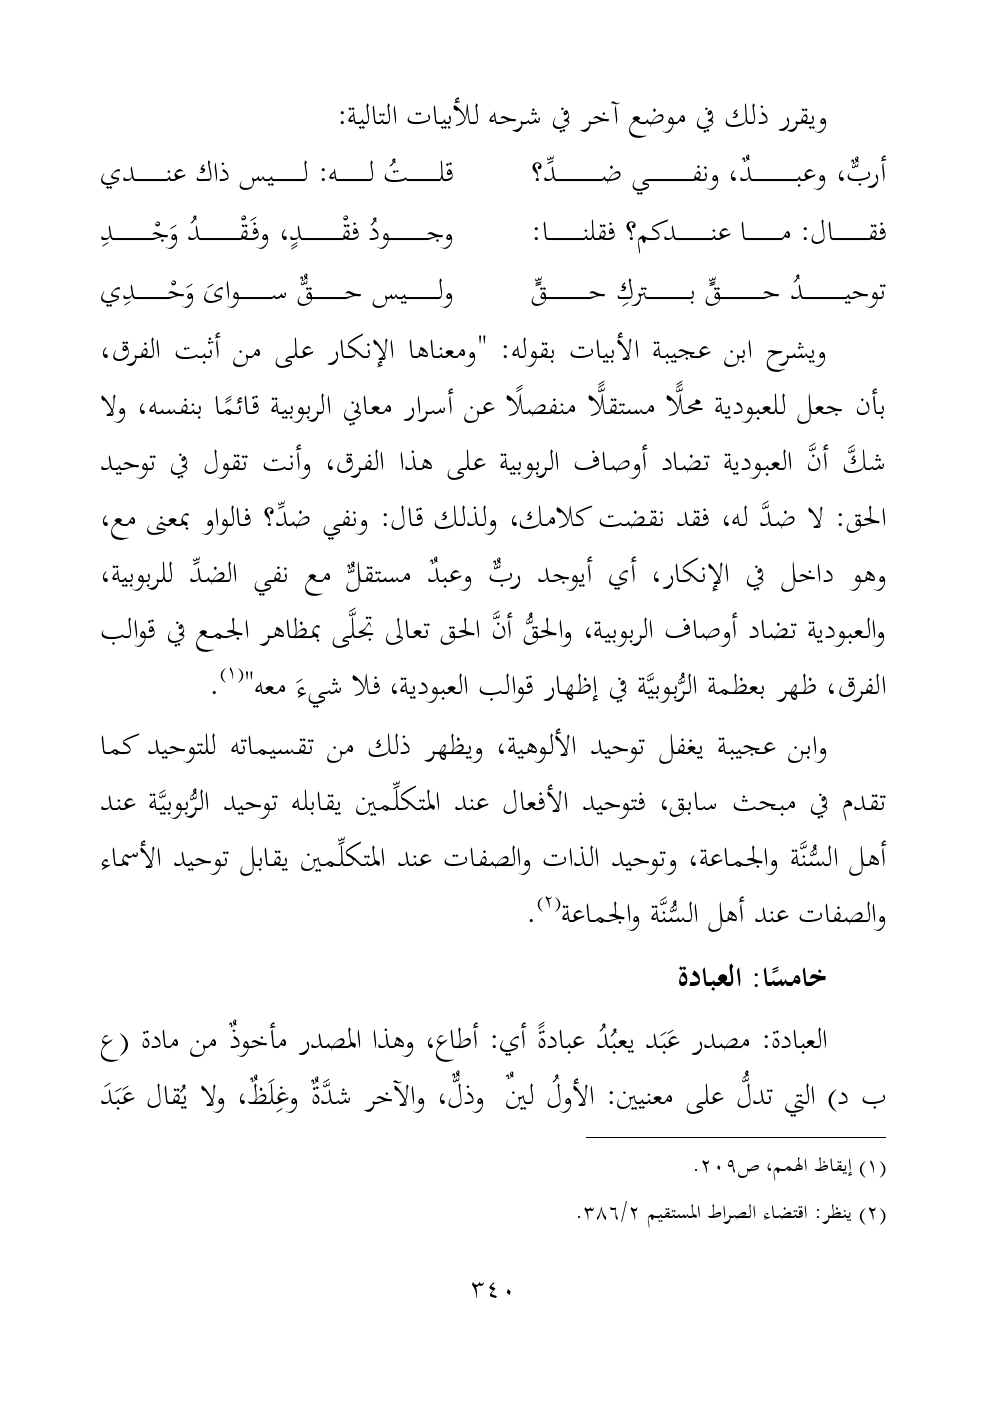 ويقرر ذلك في موضع آخر في شرحه للأبيات التالية:
أربٌّ، وعبدٌ، ونفي ضدِّ؟ قلتُ له: ليس ذاك عندي
فقال: ما عندكم؟ فقلنا: وجودُ فقْدٍ، وفَقْدُ وَجْدِ
توحيدُ حقٍّ بتركِ حقٍّ وليس حقٌّ سوايَ وَحْدِي
ويشرح ابن عجيبة الأبيات بقوله: "ومعناها الإنكار على من أثبت الفرق،
بأن جعل للعبودية محلًّا مستقلًّا منفصلًا عن أسرار معاني الربوبية قائمًا بنفسه، ولا
شكَّ أنَّ العبودية تضاد أوصاف الربوبية على هذا الفرق، وأنت تقول في توحيد
الحق: لا ضدَّ له، فقد نقضت كلامك، ولذلك قال: ونفي ضدِّ؟ فالواو بمعنى مع،
وهو داخل في الإنكار، أي أيوجد ربٌّ وعبدٌ مستقلٌّ مع نفي الضدِّ للربوبية،
والعبودية تضاد أوصاف الربوبية، والحقُّ أنَّ الحق تعالى تجلَّى بمظاهر الجمع في قوالب
الفرق، ظهر بعظمة الرُّبوبيَّة في إظهار قوالب العبودية، فلا شيءَ معه"(١).
وابن عجيبة يغفل توحيد الألوهية، ويظهر ذلك من تقسيماته للتوحيد كما
تقدم في مبحث سابق، فتوحيد الأفعال عند المتكلِّمين يقابله توحيد الرُّبوبيَّة عند
أهل السُّنَّة والجماعة، وتوحيد الذات والصفات عند المتكلِّمين يقابل توحيد الأسماء
والصفات عند أهل السُّنَّة والجماعة(٢).
خامسًا: العبادة
العبادة: مصدر عَبَد يعبُدُ عبادةً أي: أطاع، وهذا المصدر مأخوذٌ من مادة (ع
ب د) التي تدلُّ على معنيين: الأولُ لينٌ وذلٌّ، والآخر شدَّةٌ وغِلَظٌ، ولا يُقال عَبَدَ
(١) إيقاظ الهمم، ص٢٠٩.
(٢) ينظر: اقتضاء الصراط المستقيم ٣٨٦/٢.
٣٤٠